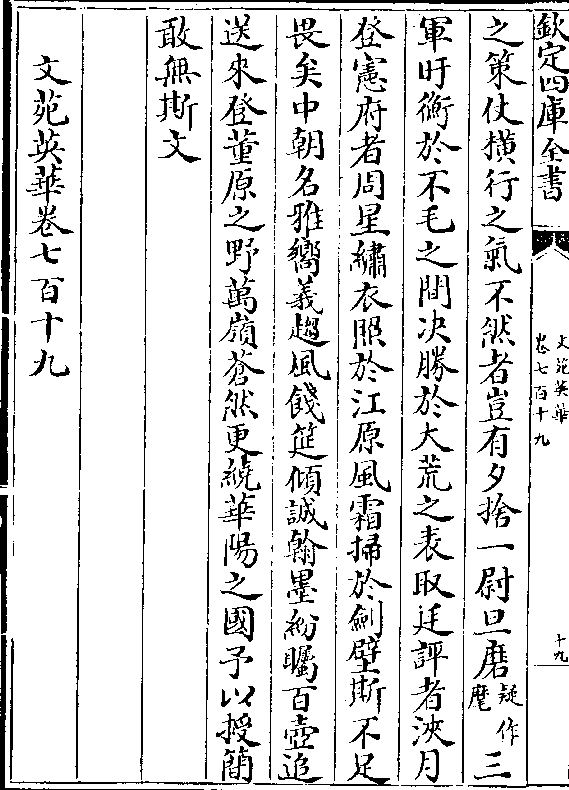 欽定四庫全書
文苑英華
卷七百十九
十九
之策仗橫行之氣不然者豈有夕捨一尉旦磨疑作麾三
軍盱衡於不毛之間决勝於大荒之表取廷評者浹月
登憲府者周星繡衣照於江原風霜掃於劍壁斯不足
畏矣中朝名雅嚮義趨風餞筵傾誠翰墨紛矚百壺追
送來登董原之野萬嶺蒼然更繞華陽之國予以授簡
敢無斯文
文苑英華卷七百十九